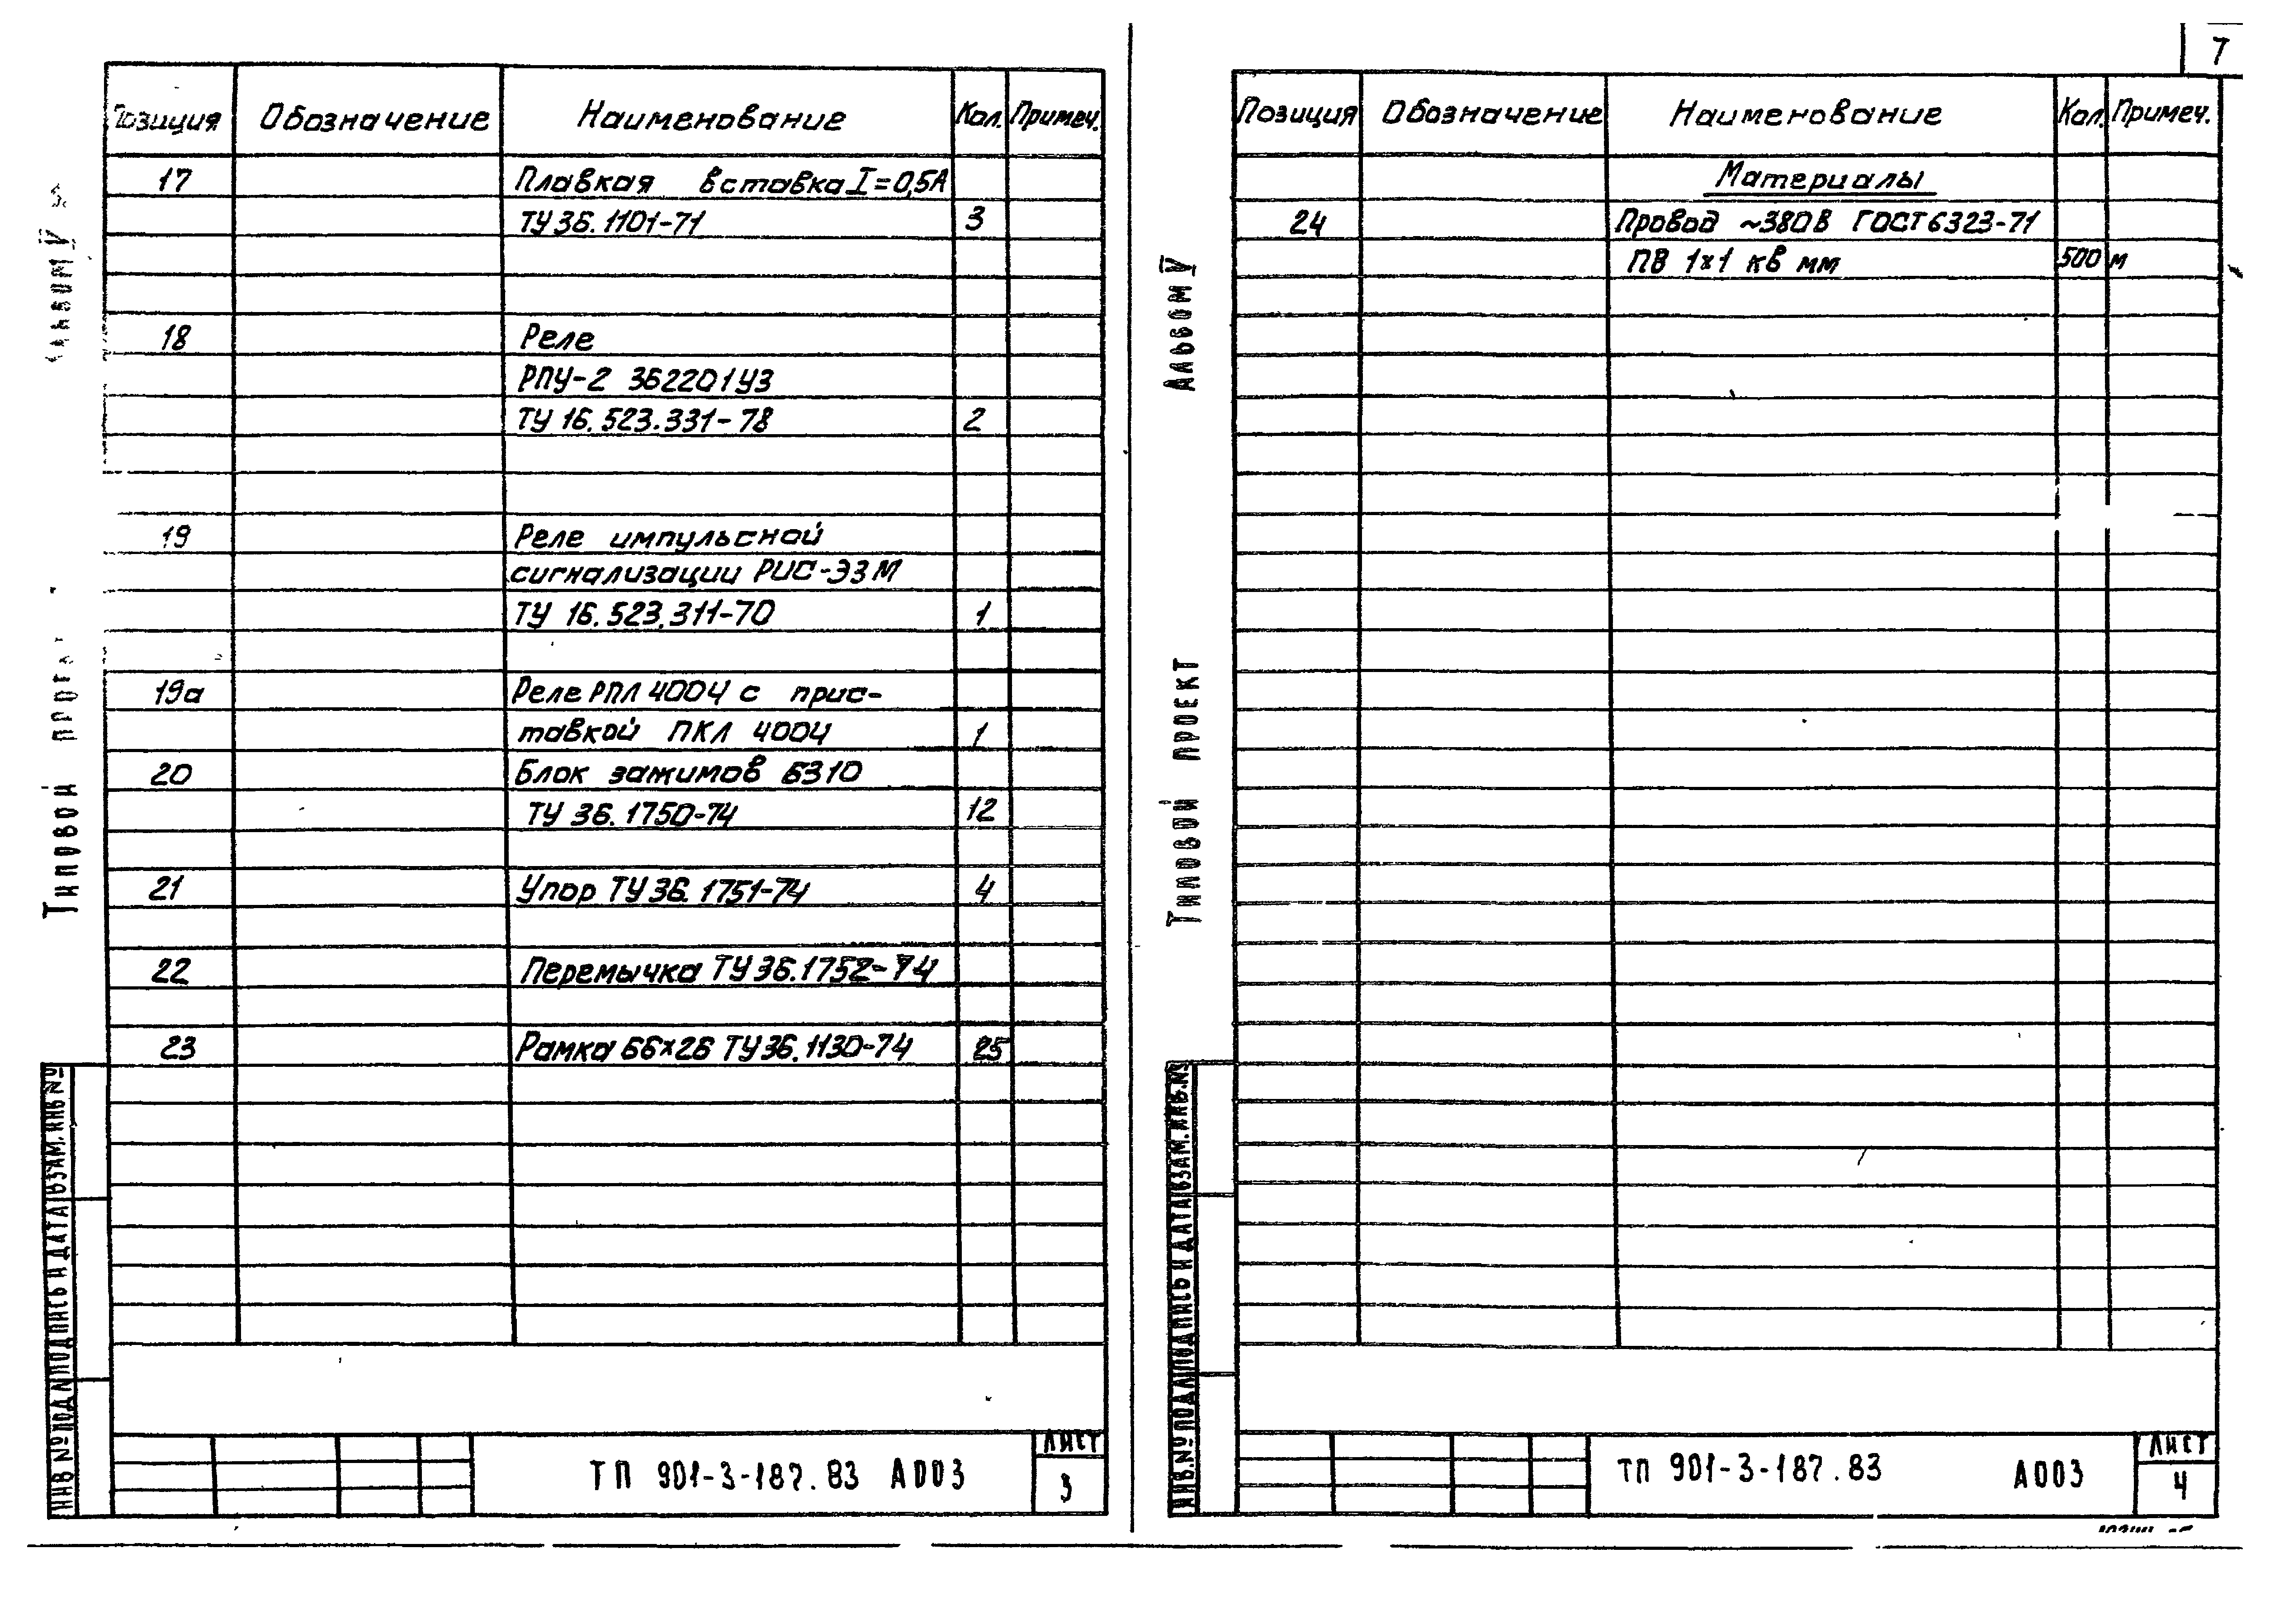 7
Позиция Обозначение Наименование Кол. Примеч.
17 Плавкая вставка I=0,5А
ТУ 36.1101-71 3
18 Реле
РПУ-2 362201У3
ТУ 16.523.331-78 2
19 Реле импульсной
сигнализации РИС-ЭЗМ
ТУ 16.523.311-70 1
19а Реле РПЛ 4004 с прис-
тавкой ПКЛ 4004 1
20 Блок зажимов БЗ10
ТУ 36.1750-74 12
21 Упор ТУ 36.1751-74 4
22 Перемычка ТУ 36.1752-74
23 Рамка 66×26 ТУ 36.1130-74 25
Альбом V
Типовой проект
ИНВ.№ ПОДЛ ПОДПИСЬ И ДАТА ВЗАМ. ИНВ №
ТП 901-3-187.83 А003
ЛИСТ
3
Позиция Обозначение Наименование Кол. Примеч.
Материалы
24 Провод ~380В ГОСТ 6323-71
ПВ 1×1 кв мм 500 м
Альбом V
Типовой проект
ИНВ.№ ПОДЛ ПОДПИСЬ И ДАТА ВЗАМ. ИНВ.№
ТП 901-3-187.83 А003
ЛИСТ
4